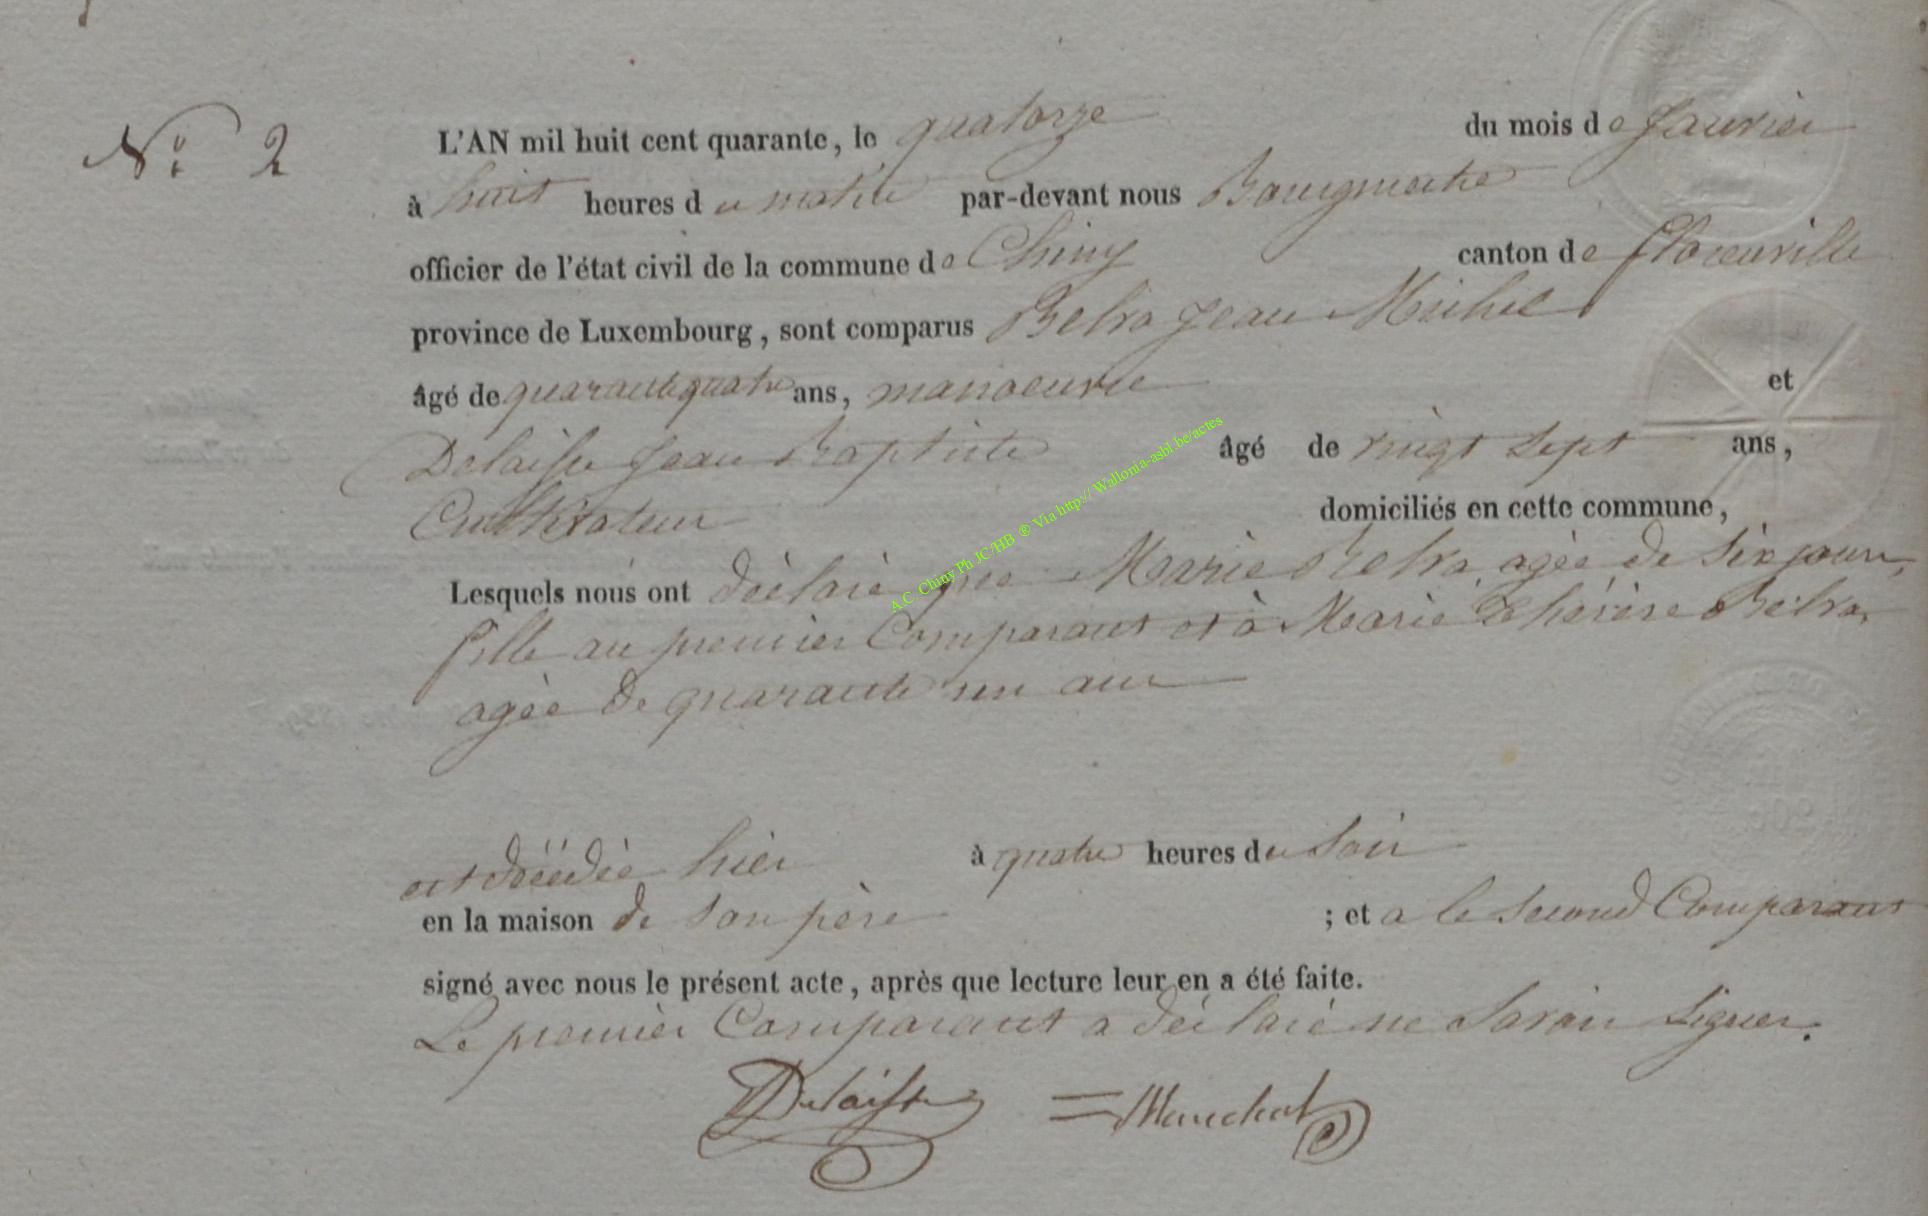 N° 2
L'AN mil huit cent quarante, le quatorze du mois de Janvier
à huit heures du matin par-devant nous Bourgmestre
officier de l'état civil de la commune de Chiny canton de florenville
province de Luxembourg, sont comparus Relva Jean Michel
âgé de quarante quatre ans, manoeuvre et
Delaisse Jean Baptiste âgé de vingt sept ans,
Cultivateur domiciliés en cette commune,
Lesquels nous ont déclaré que Marie Relva, agée de six jours,
fille au premier Comparant et à Marie Thérèse Relva,
agée de quarante un ans
est décédée hier à quatre heures du soir
en la maison de son père ; et a le second Comparant
signé avec nous le présent acte, après que lecture leur en a été faite.
Le premier Comparant a déclaré ne savoir signer.
Delaisse Marechal
A.C. Chiny Ph JC/HB ® Via http:// Wallonia-asbl.be/actes